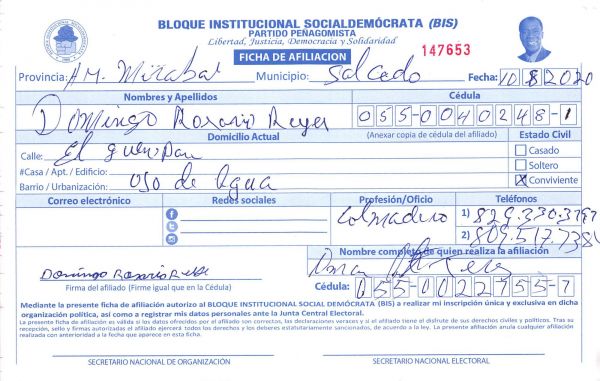 BLOQUE INSTITUCIONAL SOCIALDEMÓCRATA (BIS)
PARTIDO PEÑAGOMISTA
Libertad, Justicia, Democracia y Solidaridad
FICHA DE AFILIACION
147653
Provincia: HM. Mirabal Municipio: Salcedo Fecha: 10 8 2020
Nombres y Apellidos Cédula
Domingo Rosario Reyes 055-0040248-1
Domicilio Actual (Anexar copia de cédula del afiliado) Estado Civil
Calle: El
#Casa / Apt. / Edificio:
Barrio / Urbanización: Ojo de Agua
Casado
Soltero
X Conviviente
Correo electrónico Redes sociales Profesión/Oficio Teléfonos
Colmadero
1) 829.330.3797
2) 809.517.738
Nombre completo de quien realiza la afiliación
Domingo Rosario
Firma del afiliado (Firme igual que en la Cédula)
Cédula: 055-0022955-7
Mediante la presente ficha de afiliación autorizo al BLOQUE INSTITUCIONAL SOCIAL DEMÓCRATA (BIS) a realizar mi inscripción única y exclusiva en dicha
organización política, así como a registrar mis datos personales ante la Junta Central Electoral.
La presente ficha de afiliación es válida si los datos ofrecidos por el afiliado son correctos, las declaraciones veraces y si el afiliado tiene el disfrute de sus derechos civiles y políticos. Tras su
recepción, sello y firmas autorizadas el afiliado ejercerá todos los derechos y los deberes estatutariamente sancionados, de acuerdo a la ley. La presente afiliación anula cualquier afiliación
realizada con anterioridad a la fecha que aparece en esta ficha.
SECRETARIO NACIONAL DE ORGANIZACIÓN SECRETARIO NACIONAL ELECTORAL